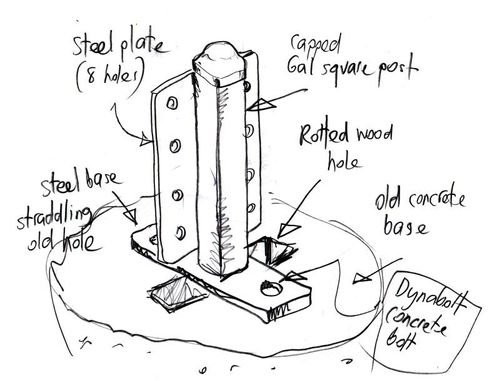 Steel plate
(8 holes)
capped
Gal square post
Rotted wood
hole
steel base
straddling
old hole
old concrete
base
Dynabolt
concrete
bolt